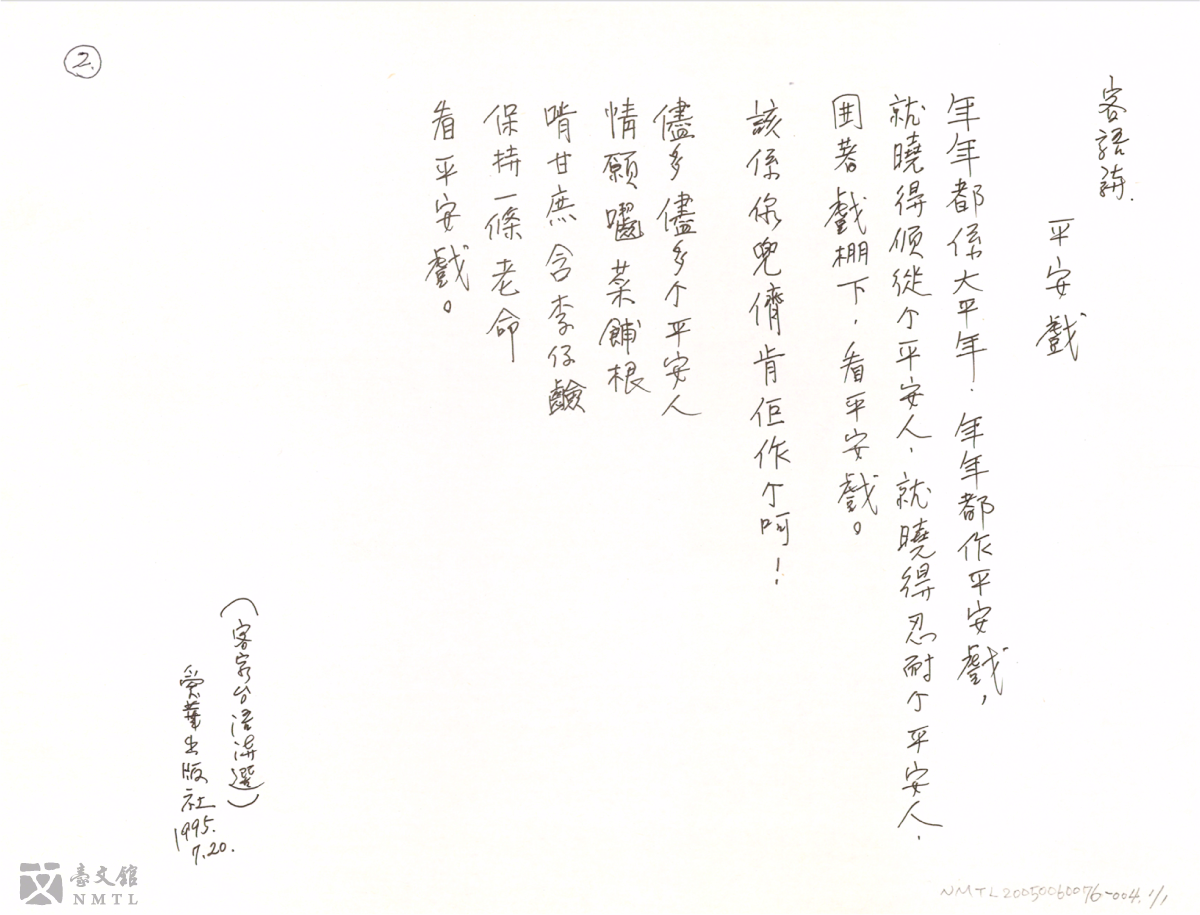 ②
客語詩.
平安戲
年年都係大平年.年年都作平安戲,
就曉得順從个平安人,就曉得忍耐个平安人.
囲著戲棚下,看平安戲。
該係你兜儕肯佢作个呵!
儘多儘多个平安人
情願囓菜脯根
啃甘庶含李仔鹼
保持一條老命
看平安戲。
(客家台語詩選)
愛華出版社
1995.
7.20.
臺文館
NMTL
NMTL20050060076-004.1/1